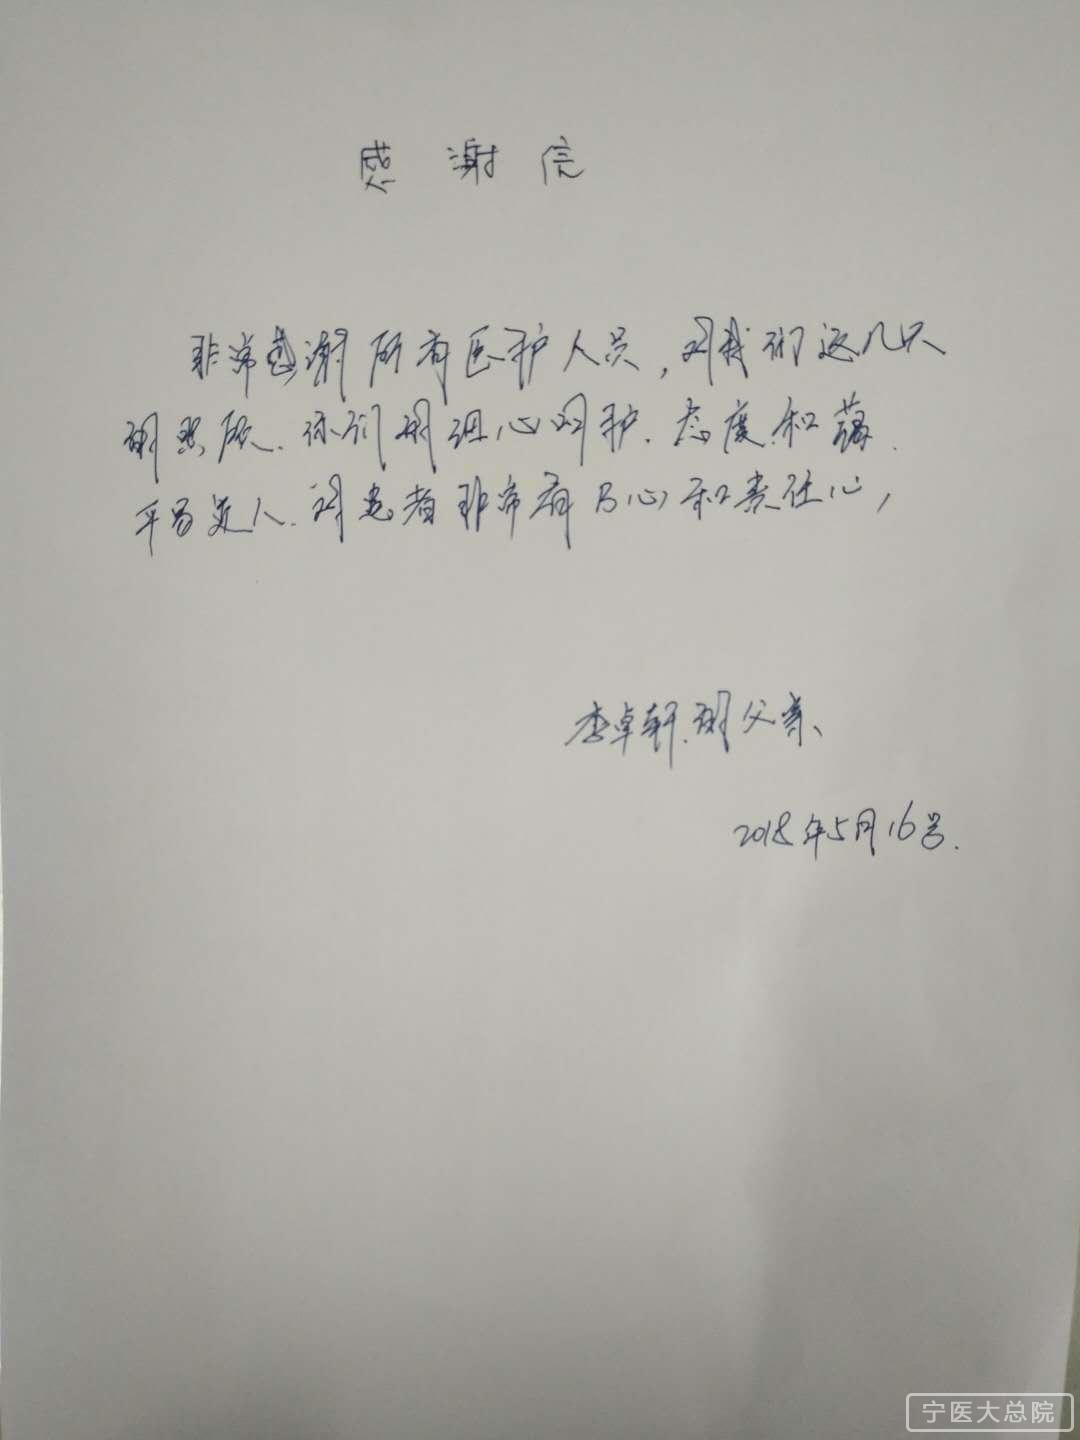 感谢信
非常感谢所有医护人员,对我们这几天
的照顾.你们的细心呵护.态度和蔼.
平易近人.对患者非常有耐心和责任心,
李卓轩的父亲、
2018年5月16号.
宁医大总院